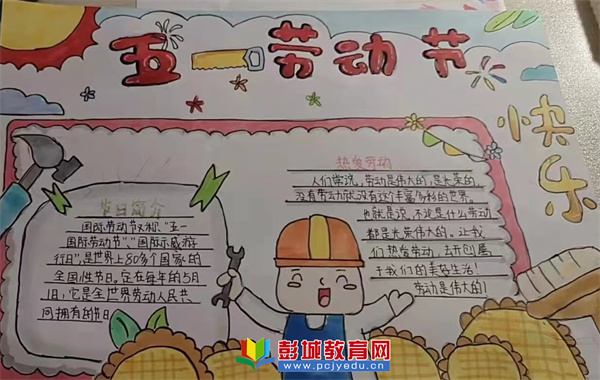 五一劳动节
快乐
节日简介
国际劳动节又称"五一
国际劳动节"、"国际示威游
行日",是世界上80多个国家的
全国性节日。定在每年的5月
1日,它是全世界劳动人民共
同拥有的节日
热爱劳动
人们常说,劳动是伟大的,是光荣的,
没有劳动就没有这个丰富多彩的世界。
也就是说,不论是什么劳动
都是光荣伟大的,让我
们热爱劳动,去开创属
于我们的美好生活!
劳动是伟大的!
彭城教育网
www.pcjyedu.cn